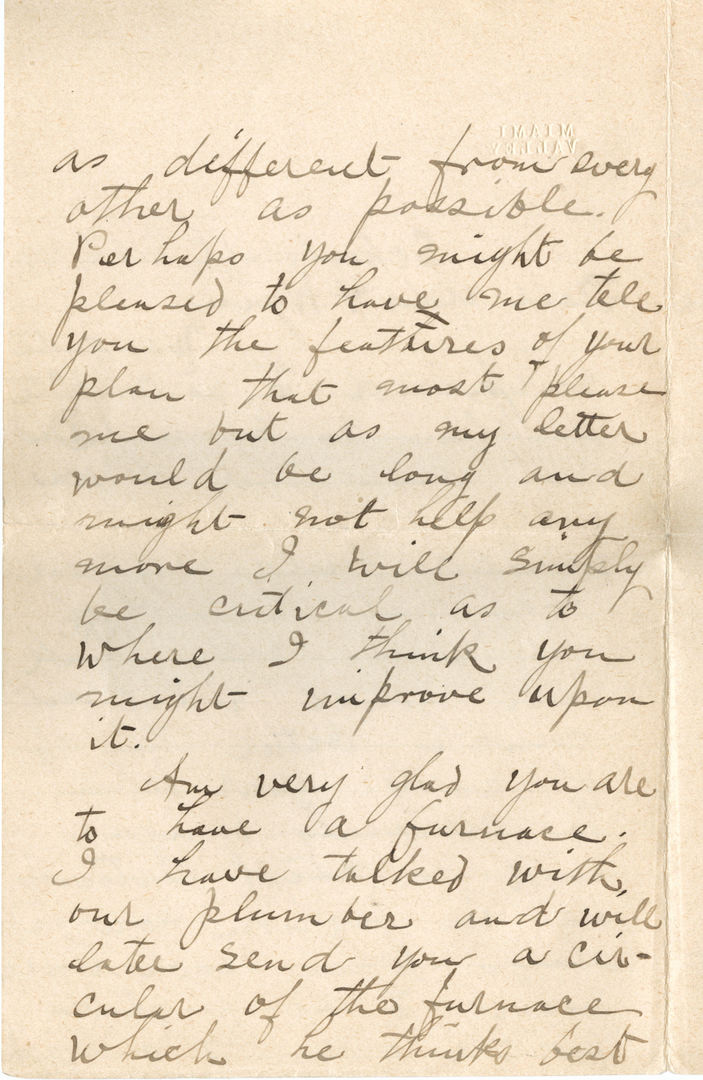 MIAMI
VALLEY
as different from every
other as possible.
Perhaps you might be
pleased to have me tell
you the features of your
plan that most please
me but as my letter
would be long and
might not help any
more I will simply
be critical as to
where I think you
might improve upon
it.
Am very glad you are
to have a furnace.
I have talked with
our plumber and will
later send you a cir-
cular of the furnace
which he thinks best